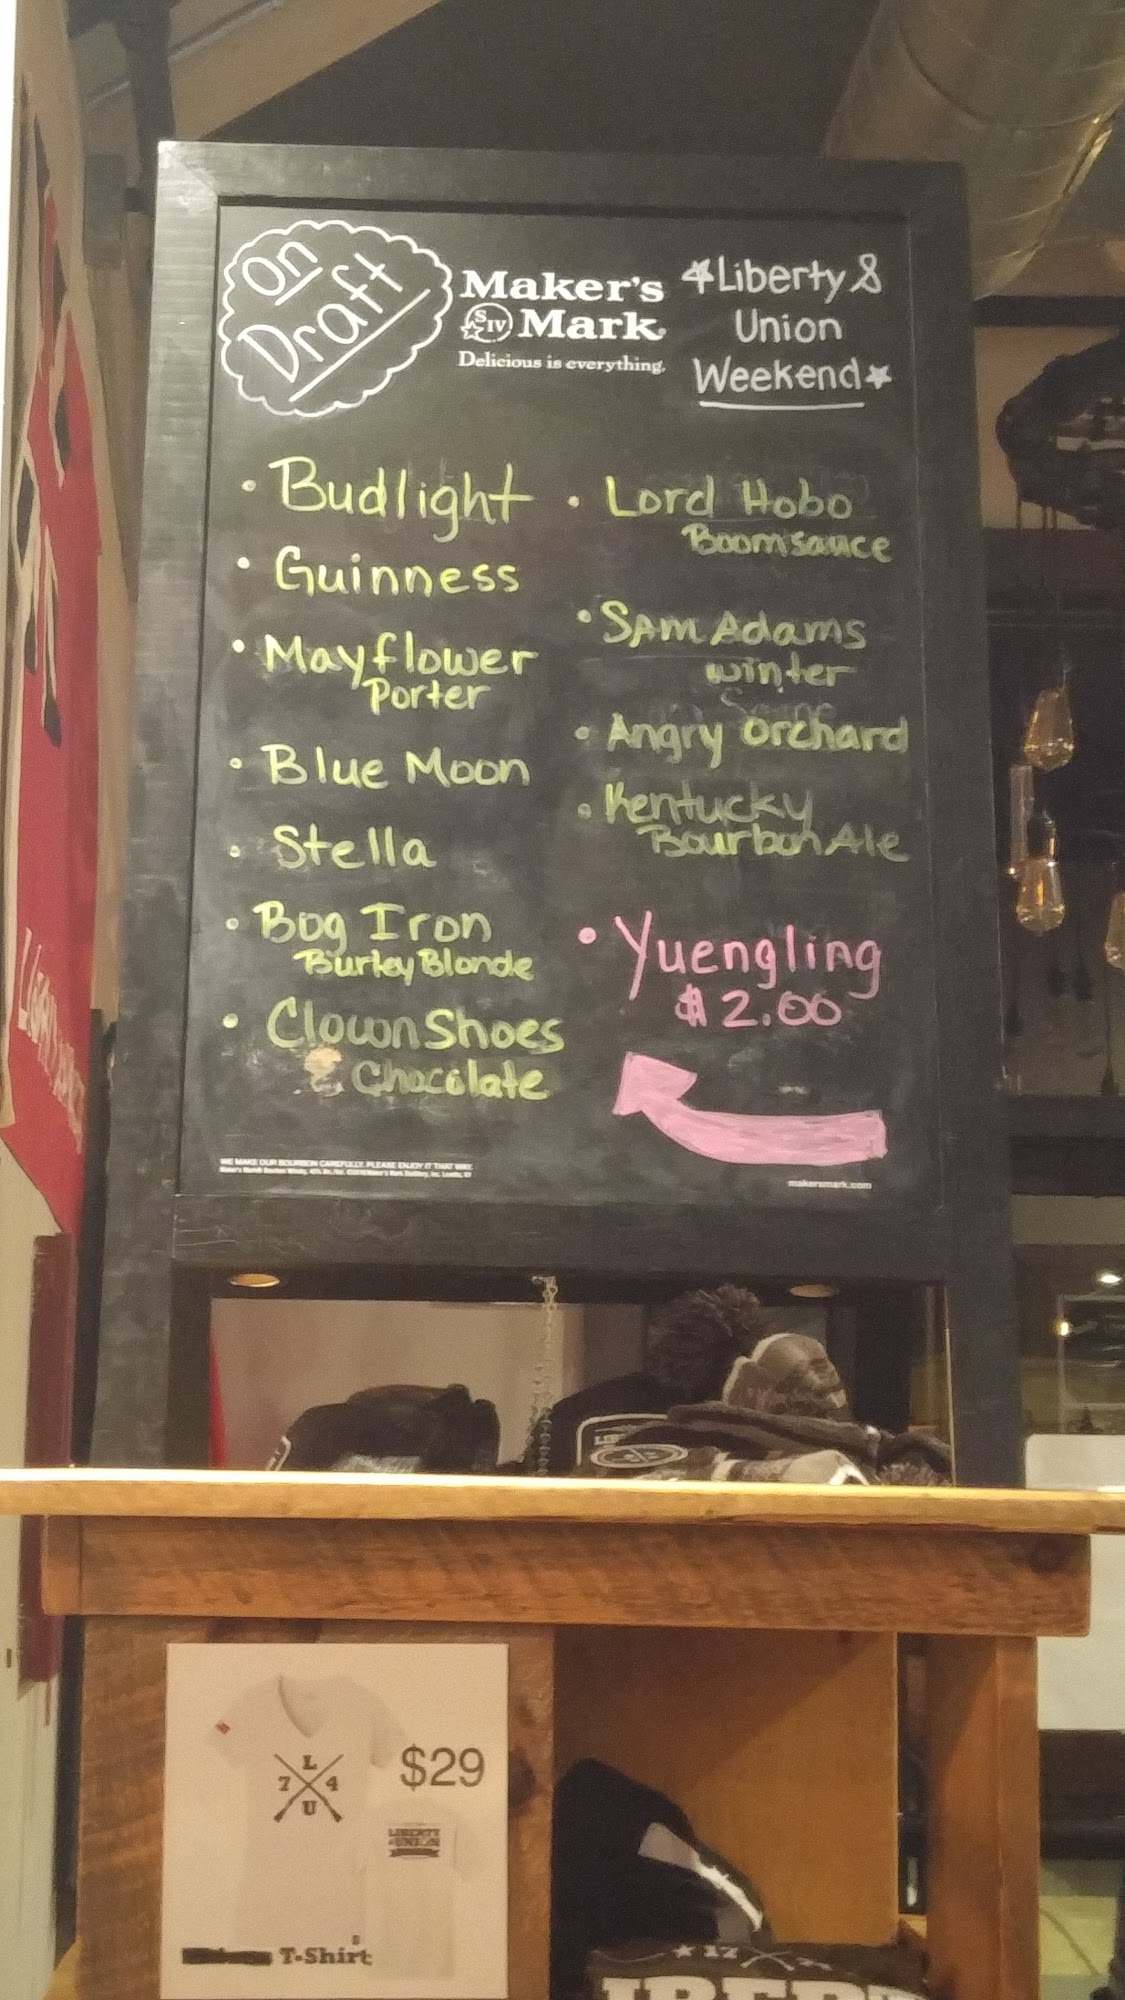 On
Draft
Maker's
S IV Mark
Delicious is everything.
Liberty &
Union
Weekend
• Budlight
• Guinness
• Mayflower
Porter
• Blue Moon
• Stella
• Bog Iron
Burley Blonde
• Clown Shoes
Chocolate
• Lord Hobo
Boomsauce
• Sam Adams
winter
• Angry Orchard
• Kentucky
Bourbon Ale
• Yuengling
$2.00
WE MAKE OUR BOURBON CAREFULLY. PLEASE ENJOY IT THAT WAY.
makersmark.com
L
7 4
U
$29
LIBERTY
& UNION
T-Shirts
17